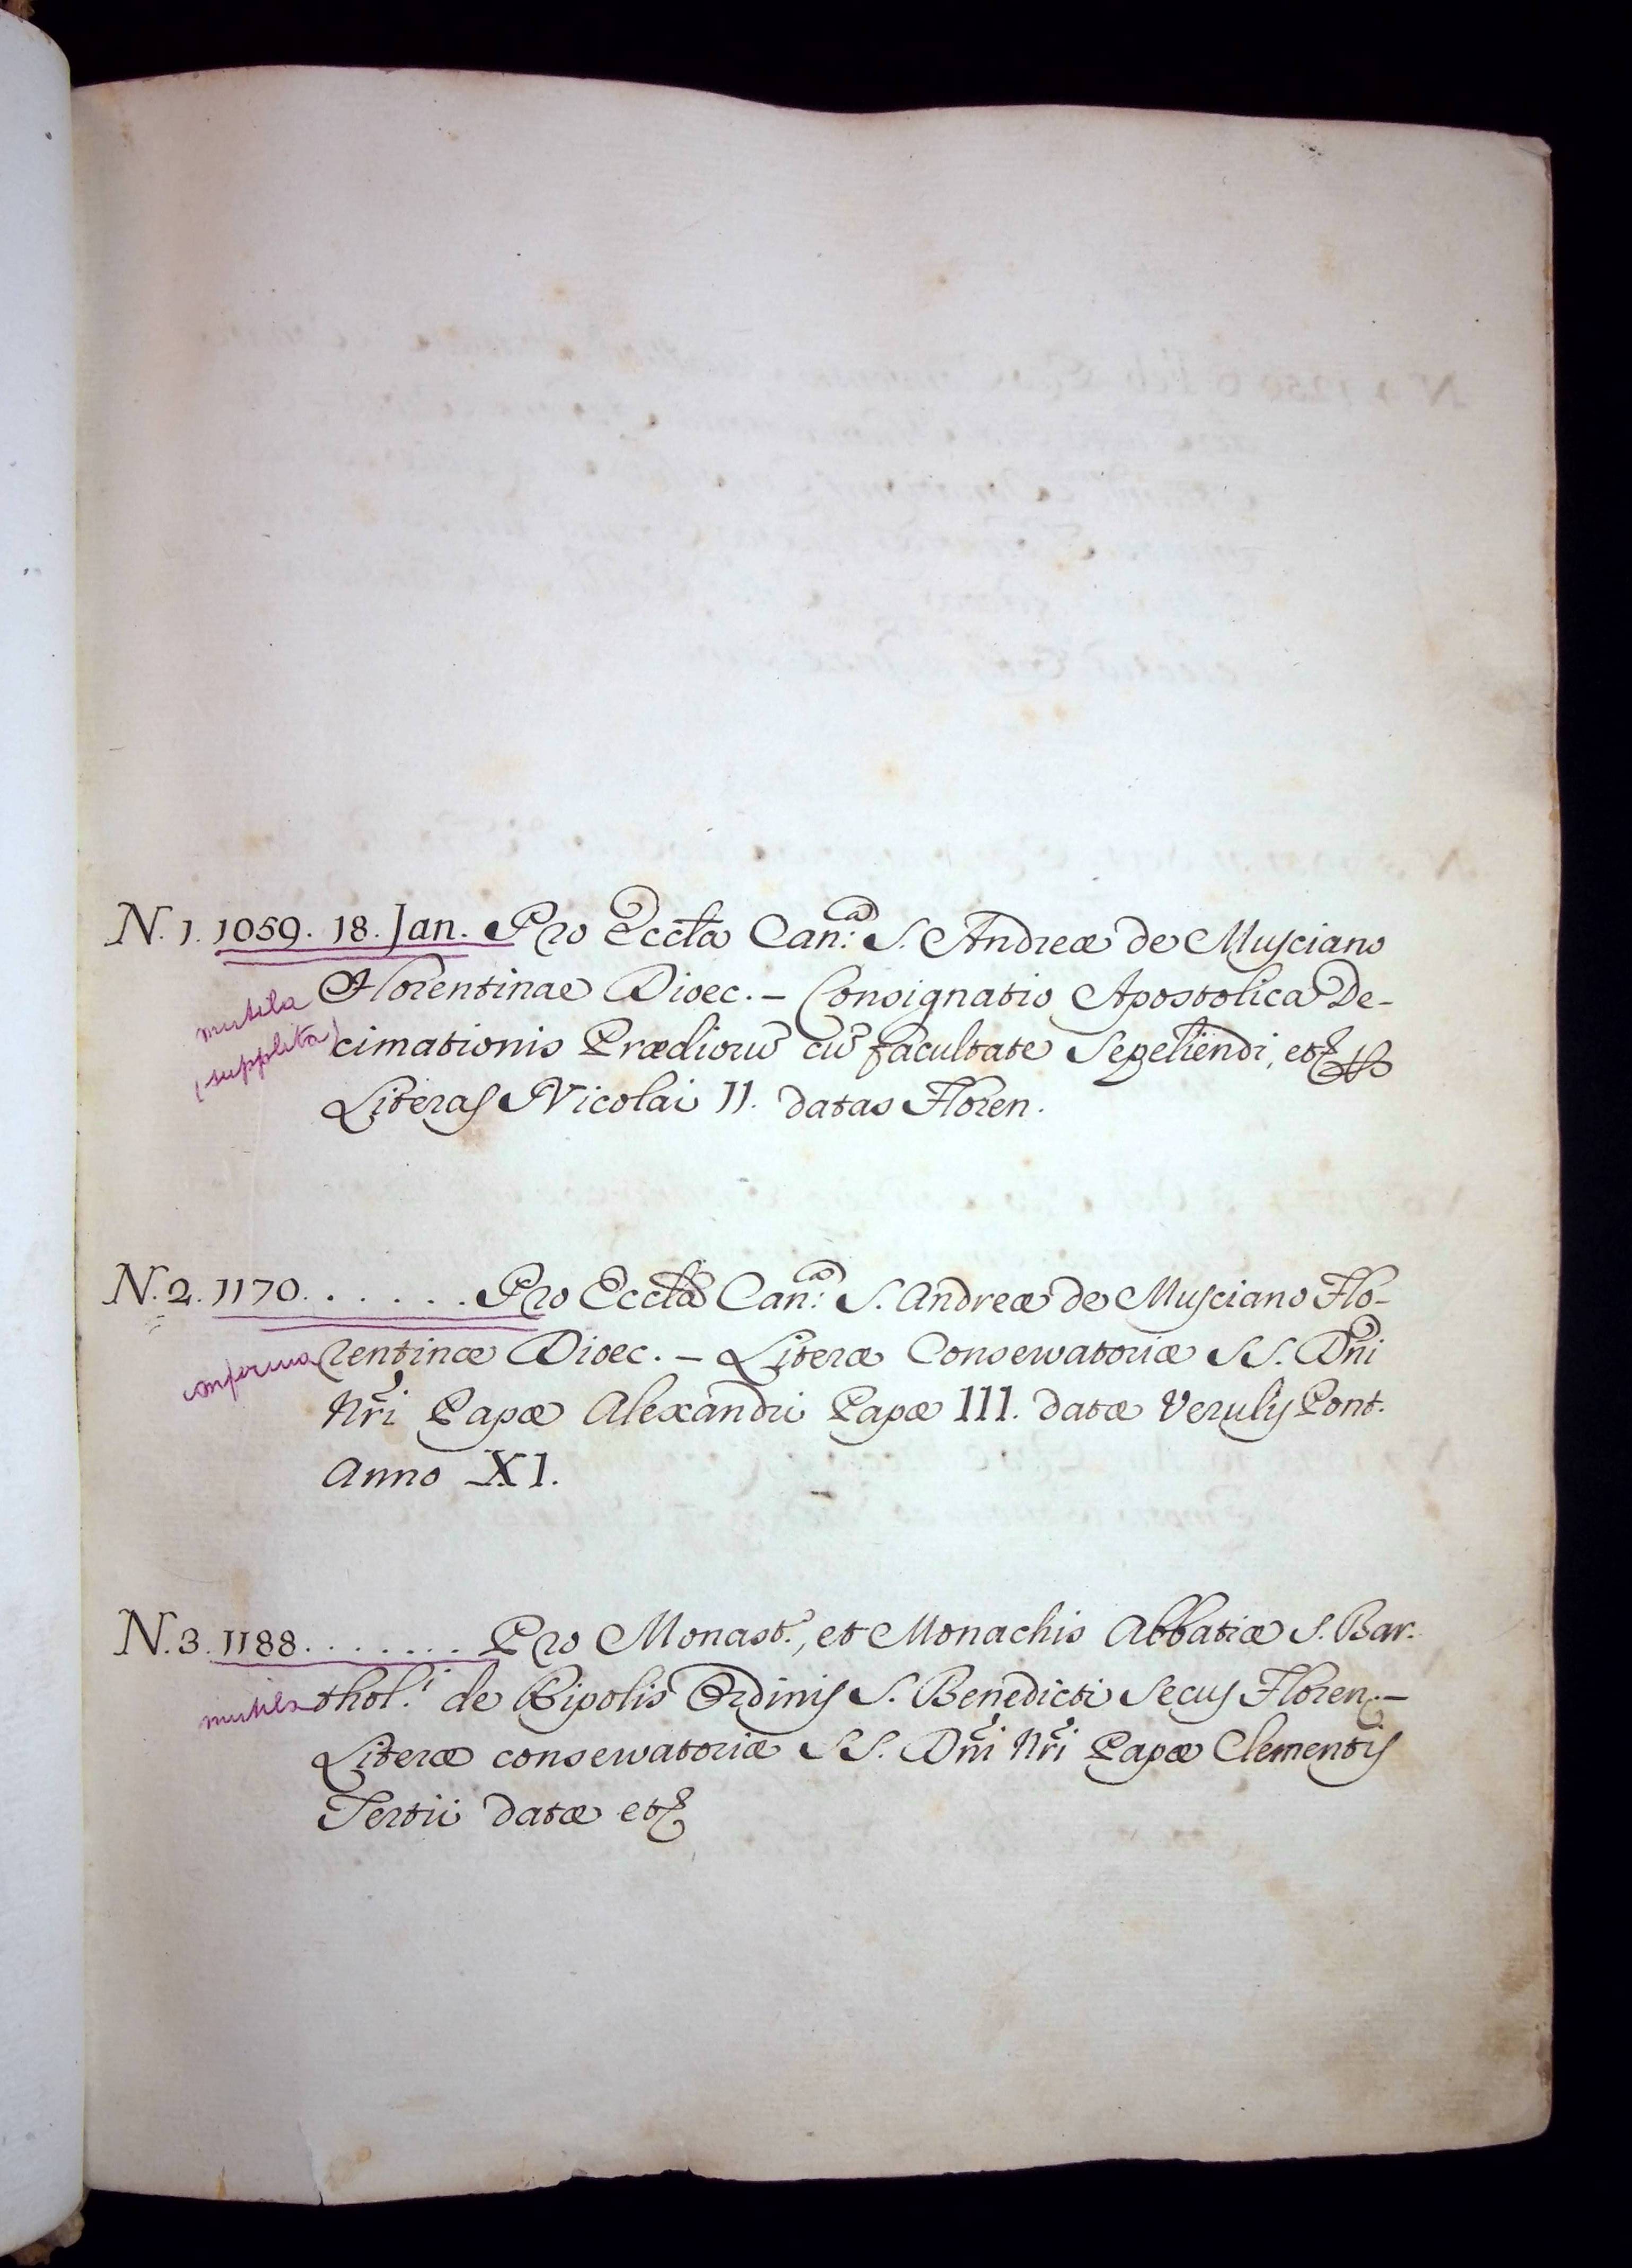 N. 1. 1059. 18. Jan. Pro Eccła Can:ᵃ S. Andreæ de Musciano
mutila Florentinae Dioec. – Consignatio Apostolica De-
(supplita) cimationis Prædiorū cū facultate Sepeliendi, etc.
Literas Nicolai II. datas Floren.
N. 2. 1170. . . . . . . Pro Eccła Can:ᵃ S. Andreæ de Musciano Flo-
conferma rentinæ Dioec. – Literæ Conservatoriæ SS. Dñi
Nři Papæ Alexandri Papæ III. datæ Verulij Pont.
Anno XI.
N. 3. 1188. . . . . . . . Pro Monast.°, et Monachis Abbatiæ S. Bar-
mutila thol.ⁱ de Ripolis Ordinis S. Benedicti Secus Floren. –
Literæ conservatoriæ SS. Dñi Nři Papæ Clementis
Tertii datæ etc.